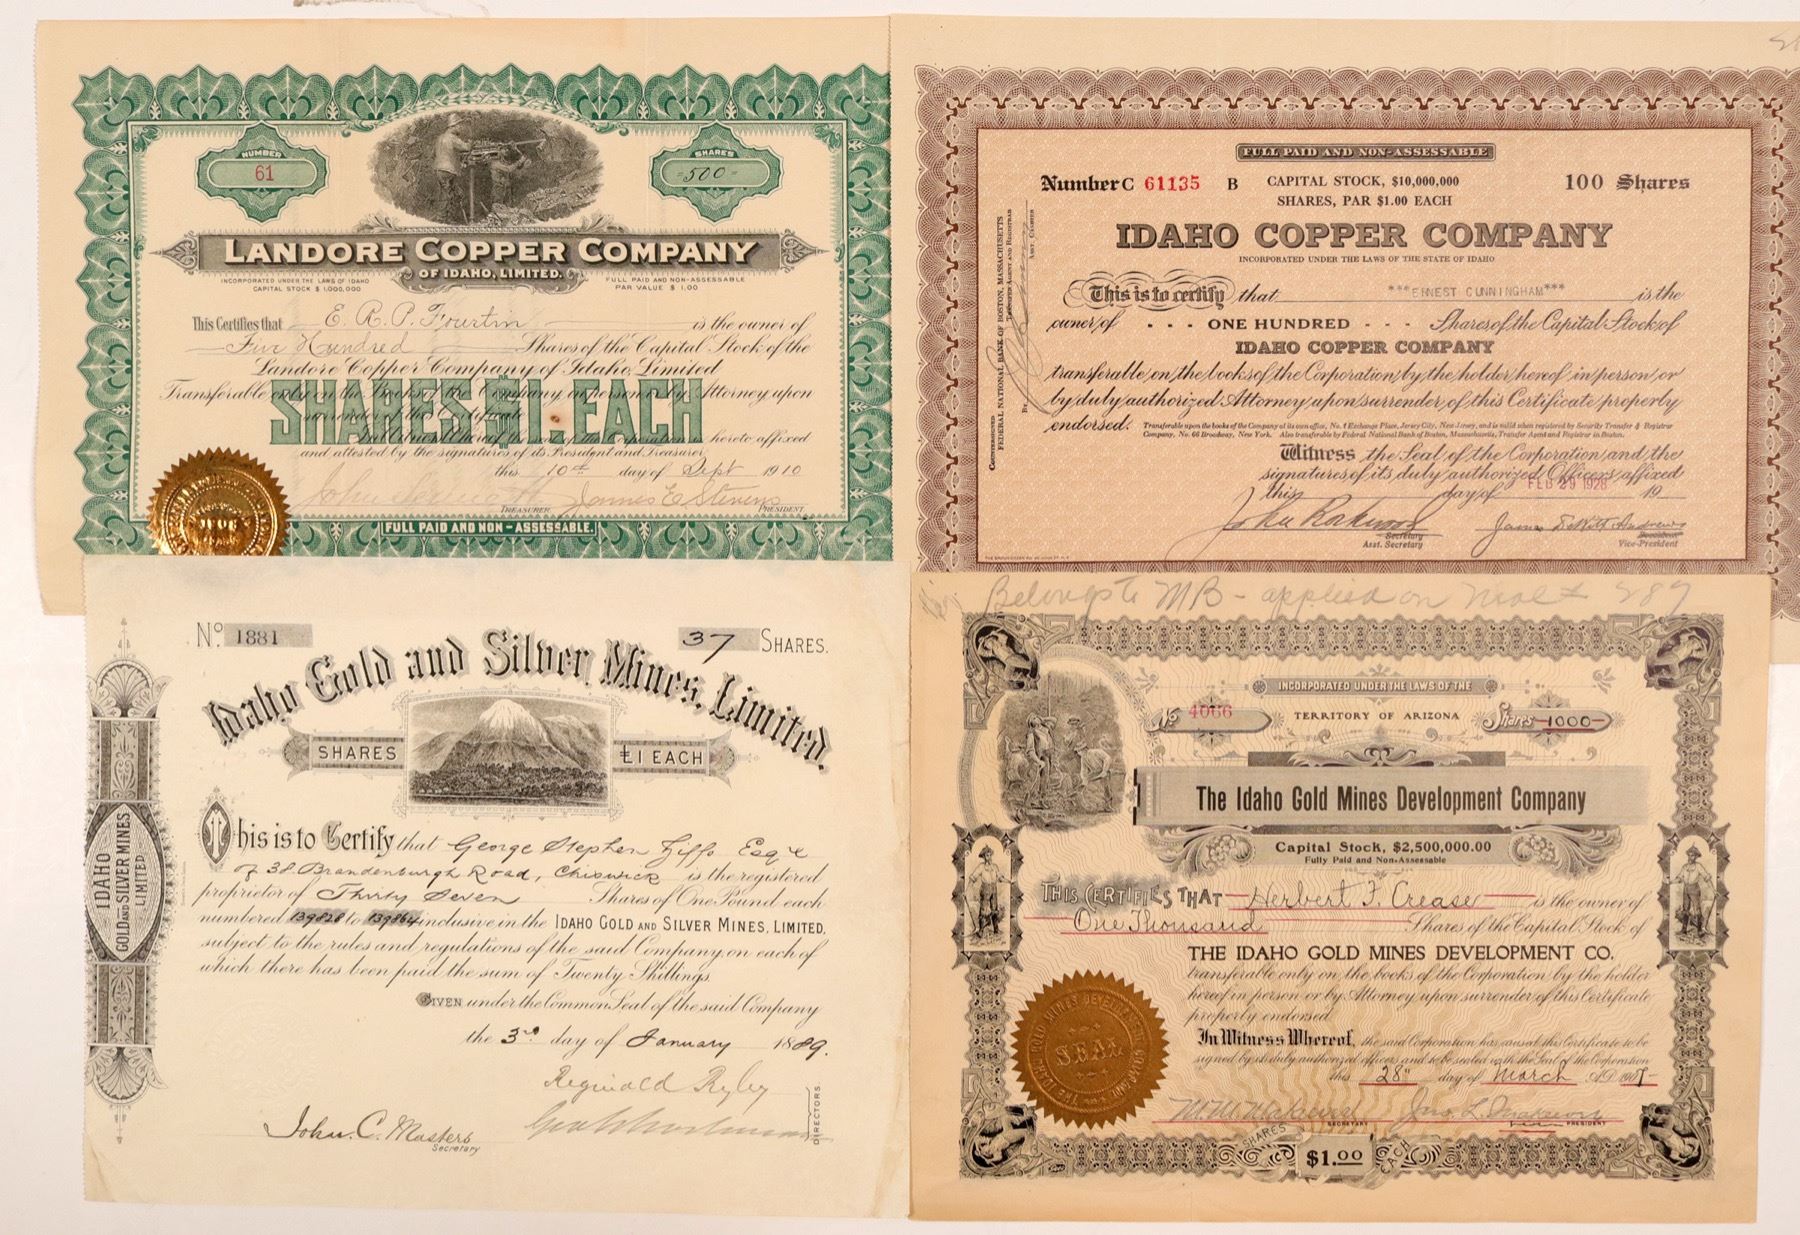 NUMBER
61
SHARES
=500=
LANDORE COPPER COMPANY
OF IDAHO, LIMITED.
INCORPORATED UNDER THE LAWS OF IDAHO
CAPITAL STOCK $1,000,000
FULL PAID AND NON-ASSESSABLE
PAR VALUE $1.00
This Certifies that E. R. P. Fourtin is the owner of
Five Hundred Shares of the Capital Stock of the
Landore Copper Company of Idaho, Limited
Transferable only on the Books of the Company in person or by Attorney upon
surrender of this Certificate
SHARES $1. EACH
hereto affixed
and attested by the signatures of its President and Treasurer
this 10th day of Sept 1910
James E Stevens
TREASURER
PRESIDENT
FULL PAID AND NON-ASSESSABLE.
FULL PAID AND NON-ASSESSABLE
Number C 61135 B CAPITAL STOCK, $10,000,000 100 Shares
SHARES, PAR $1.00 EACH
IDAHO COPPER COMPANY
INCORPORATED UNDER THE LAWS OF THE STATE OF IDAHO
This is to certify that ***ERNEST CUNNINGHAM*** is the
owner of - - - ONE HUNDRED - - - Shares of the Capital Stock of
IDAHO COPPER COMPANY
transferable on the books of the Corporation by the holder hereof in person or
by duly authorized Attorney upon surrender of this Certificate properly
endorsed. Transferable upon the books of the Company at its own office, No. 1 Exchange Place, Jersey City, New Jersey, and is valid when registered by Security Transfer & Registrar
Company, No. 66 Broadway, New York. Also transferable by Federal National Bank of Boston, Massachusetts, Transfer Agent and Registrar in Boston.
Witness the Seal of the Corporation and the
signatures of its duly authorized Officers affixed
this day of FEB 29 1928 19
Secretary
Asst. Secretary
James DeWitt Andrews
President
Vice-President
COUNTERSIGNED
FEDERAL NATIONAL BANK OF BOSTON, MASSACHUSETTS
TRANSFER AGENT AND REGISTRAR
By
ASST. CASHIER
No. 1881
37 SHARES.
Idaho Gold and Silver Mines, Limited.
SHARES £1 EACH
IDAHO
GOLD AND SILVER MINES
LIMITED
This is to Certify that George Stephen Esqre
of 38 Brandenburgh Road, Chiswick is the registered
proprietor of Thirty Seven Shares of One Pound each
numbered 139828 to 139864 inclusive in the IDAHO GOLD AND SILVER MINES, LIMITED,
subject to the rules and regulations of the said Company, on each of
which there has been paid the sum of Twenty Shillings.
GIVEN under the Common Seal of the said Company
the 3rd day of January 1889.
Reginald Ryley
DIRECTORS
John. C. Masters
Secretary
Belongs to MB - applied on
INCORPORATED UNDER THE LAWS OF THE
No 4066 TERRITORY OF ARIZONA Shares -1000-
The Idaho Gold Mines Development Company
Capital Stock, $2,500,000.00
Fully Paid and Non-Assessable
THIS CERTIFIES THAT Herbert F. Crease is the owner of
One Thousand Shares of the Capital Stock of
THE IDAHO GOLD MINES DEVELOPMENT CO.
transferable only on the books of the Corporation by the holder
hereof in person or by Attorney upon surrender of this Certificate
properly endorsed.
In Witness Whereof, the said Corporation has caused this Certificate to be
signed by its duly authorized officers and to be sealed with the Seal of the Corporation
this 28" day of March A.D. 1907
SECRETARY
PRESIDENT
THE IDAHO GOLD MINES DEVELOPMENT COMPANY
SEAL
SHARES
$1.00
EACH